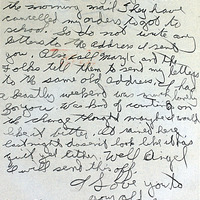 the morning mail. They have
cancelled my orders to go to
school. So do not write any
letters to the address I sent
you. I'll call Marge and the
folks tell them to send my letters
to the same old address. What
a beastly weekend was much
for you. Was kind of counting on
the change thought maybe I would
like it better. It rained here
last night doesn't look like it has
quit yet either. Well Angel
I will send this off.
I Love you to